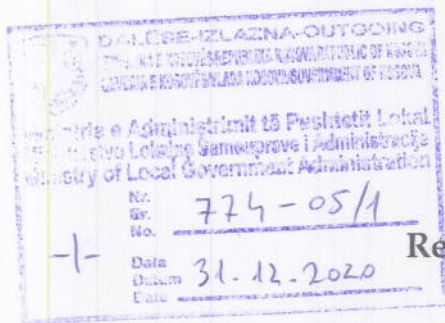 DALËSE-IZLAZNA-OUTGOING
REPUBLIC OF KOSOVA
GOVERNMENT OF KOSOVA
e Administrimit të Pushtetit Lokal
Lokalne Samouprave i Administracije
Ministry of Local Government Administration
Nr.
Br.
No. 774-05/1
-1-
Re
Data
Datum 31.12.2020
Date